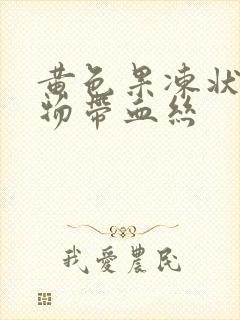 黄色果凍状
物帶血絲
我愛農民